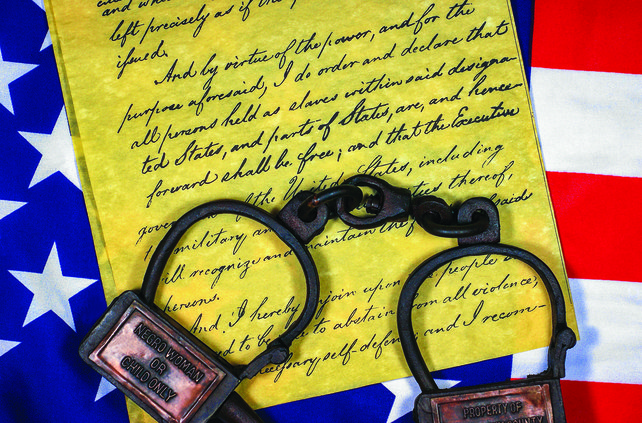 and
left precisely as if
issued.
And by virtue of the power, and for the
purpose aforesaid, I do order and declare that
all persons held as slaves within said designa-
ted States, and parts of States, are, and hence-
forward shall be free; and that the Executive
of the United States, including
military thereof,
recognize and maintain the
persons.
And I hereby join upon people
to be to abstain from all violence,
self-defence; and I recom-
NEGRO WOMAN
OR
CHILD ONLY
PROPERTY OF